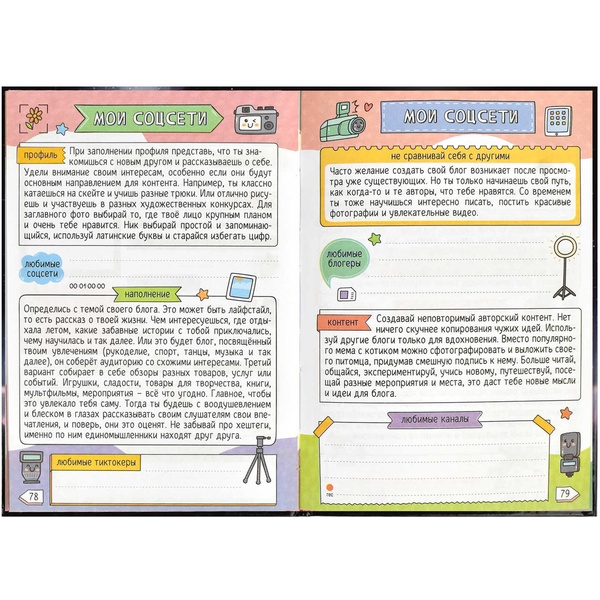 МОИ СОЦСЕТИ
профиль
При заполнении профиля представь, что ты зна-
комишься с новым другом и рассказываешь о себе.
Удели внимание своим интересам, особенно если они будут
основным направлением для контента. Например, ты классно
катаешься на скейте и учишь разные трюки. Или отлично рису-
ешь и участвуешь в разных художественных конкурсах. Для
заглавного фото выбирай то, где твоё лицо крупным планом
и очень тебе нравится. Ник выбирай простой и запоминаю-
щийся, используй латинские буквы и старайся избегать цифр.
любимые
соцсети
00:01:00:00
наполнение
Определись с темой своего блога. Это может быть лайфстайл,
то есть рассказ о твоей жизни. Чем интересуешься, где отды-
хала летом, какие забавные истории с тобой приключались,
чему научилась и так далее. Или это будет блог, посвящённый
твоим увлечениям (рукоделие, спорт, танцы, музыка и так
далее), он соберёт аудиторию со схожими интересами. Третий
вариант собирает в себе обзоры разных товаров, услуг или
событий. Игрушки, сладости, товары для творчества, книги,
мультфильмы, мероприятия – всё что угодно. Главное, чтобы
это увлекало тебя саму. Тогда ты будешь с воодушевлением
и блеском в глазах рассказывать своим слушателям свои впе-
чатления, и поверь, они это оценят. Не забывай про хештеги,
именно по ним единомышленники находят друг друга.
любимые тиктокеры
78
МОИ СОЦСЕТИ
не сравнивай себя с другими
Часто желание создать свой блог возникает после просмо-
тра уже существующих. Но ты только начинаешь свой путь,
как когда-то и те авторы, что тебе нравятся. Со временем
ты тоже научишься интересно писать, постить красивые
фотографии и увлекательные видео.
любимые
блогеры
контент
Создавай неповторимый авторский контент. Нет
ничего скучнее копирования чужих идей. Исполь-
зуй другие блоги только для вдохновения. Вместо популярно-
го мема с котиком можно сфотографировать и выложить свое-
го питомца, придумав смешную подпись к нему. Больше читай,
общайся, экспериментируй, учись новому, путешествуй, посе-
щай разные мероприятия и места, это даст тебе новые мысли
и идеи для блога.
любимые каналы
rec
79